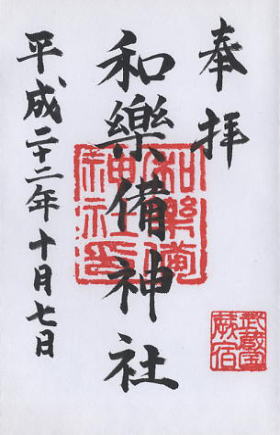 奉拝
和樂備神社
平成二十二年十月七日
和樂備神社印
武蔵国蕨宿